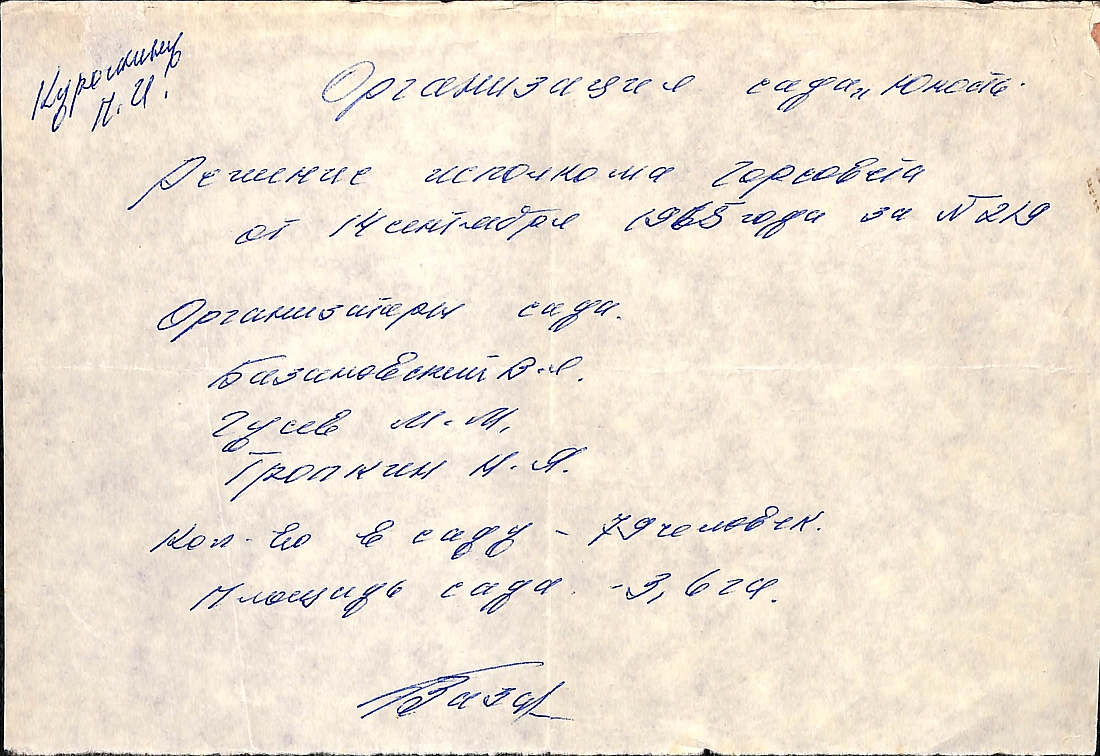 Курочкину
П. И.
Организация сада „Юность.
Решение исполкома Горсовета
от 14 сентября 1965 года за N 219
Организаторы сада.
Базановский В.Я.
Гусев М. М.
Тропкин Н. Я.
Кол-во в саду - 79 человек.
Площадь сада. - 3,6 га.